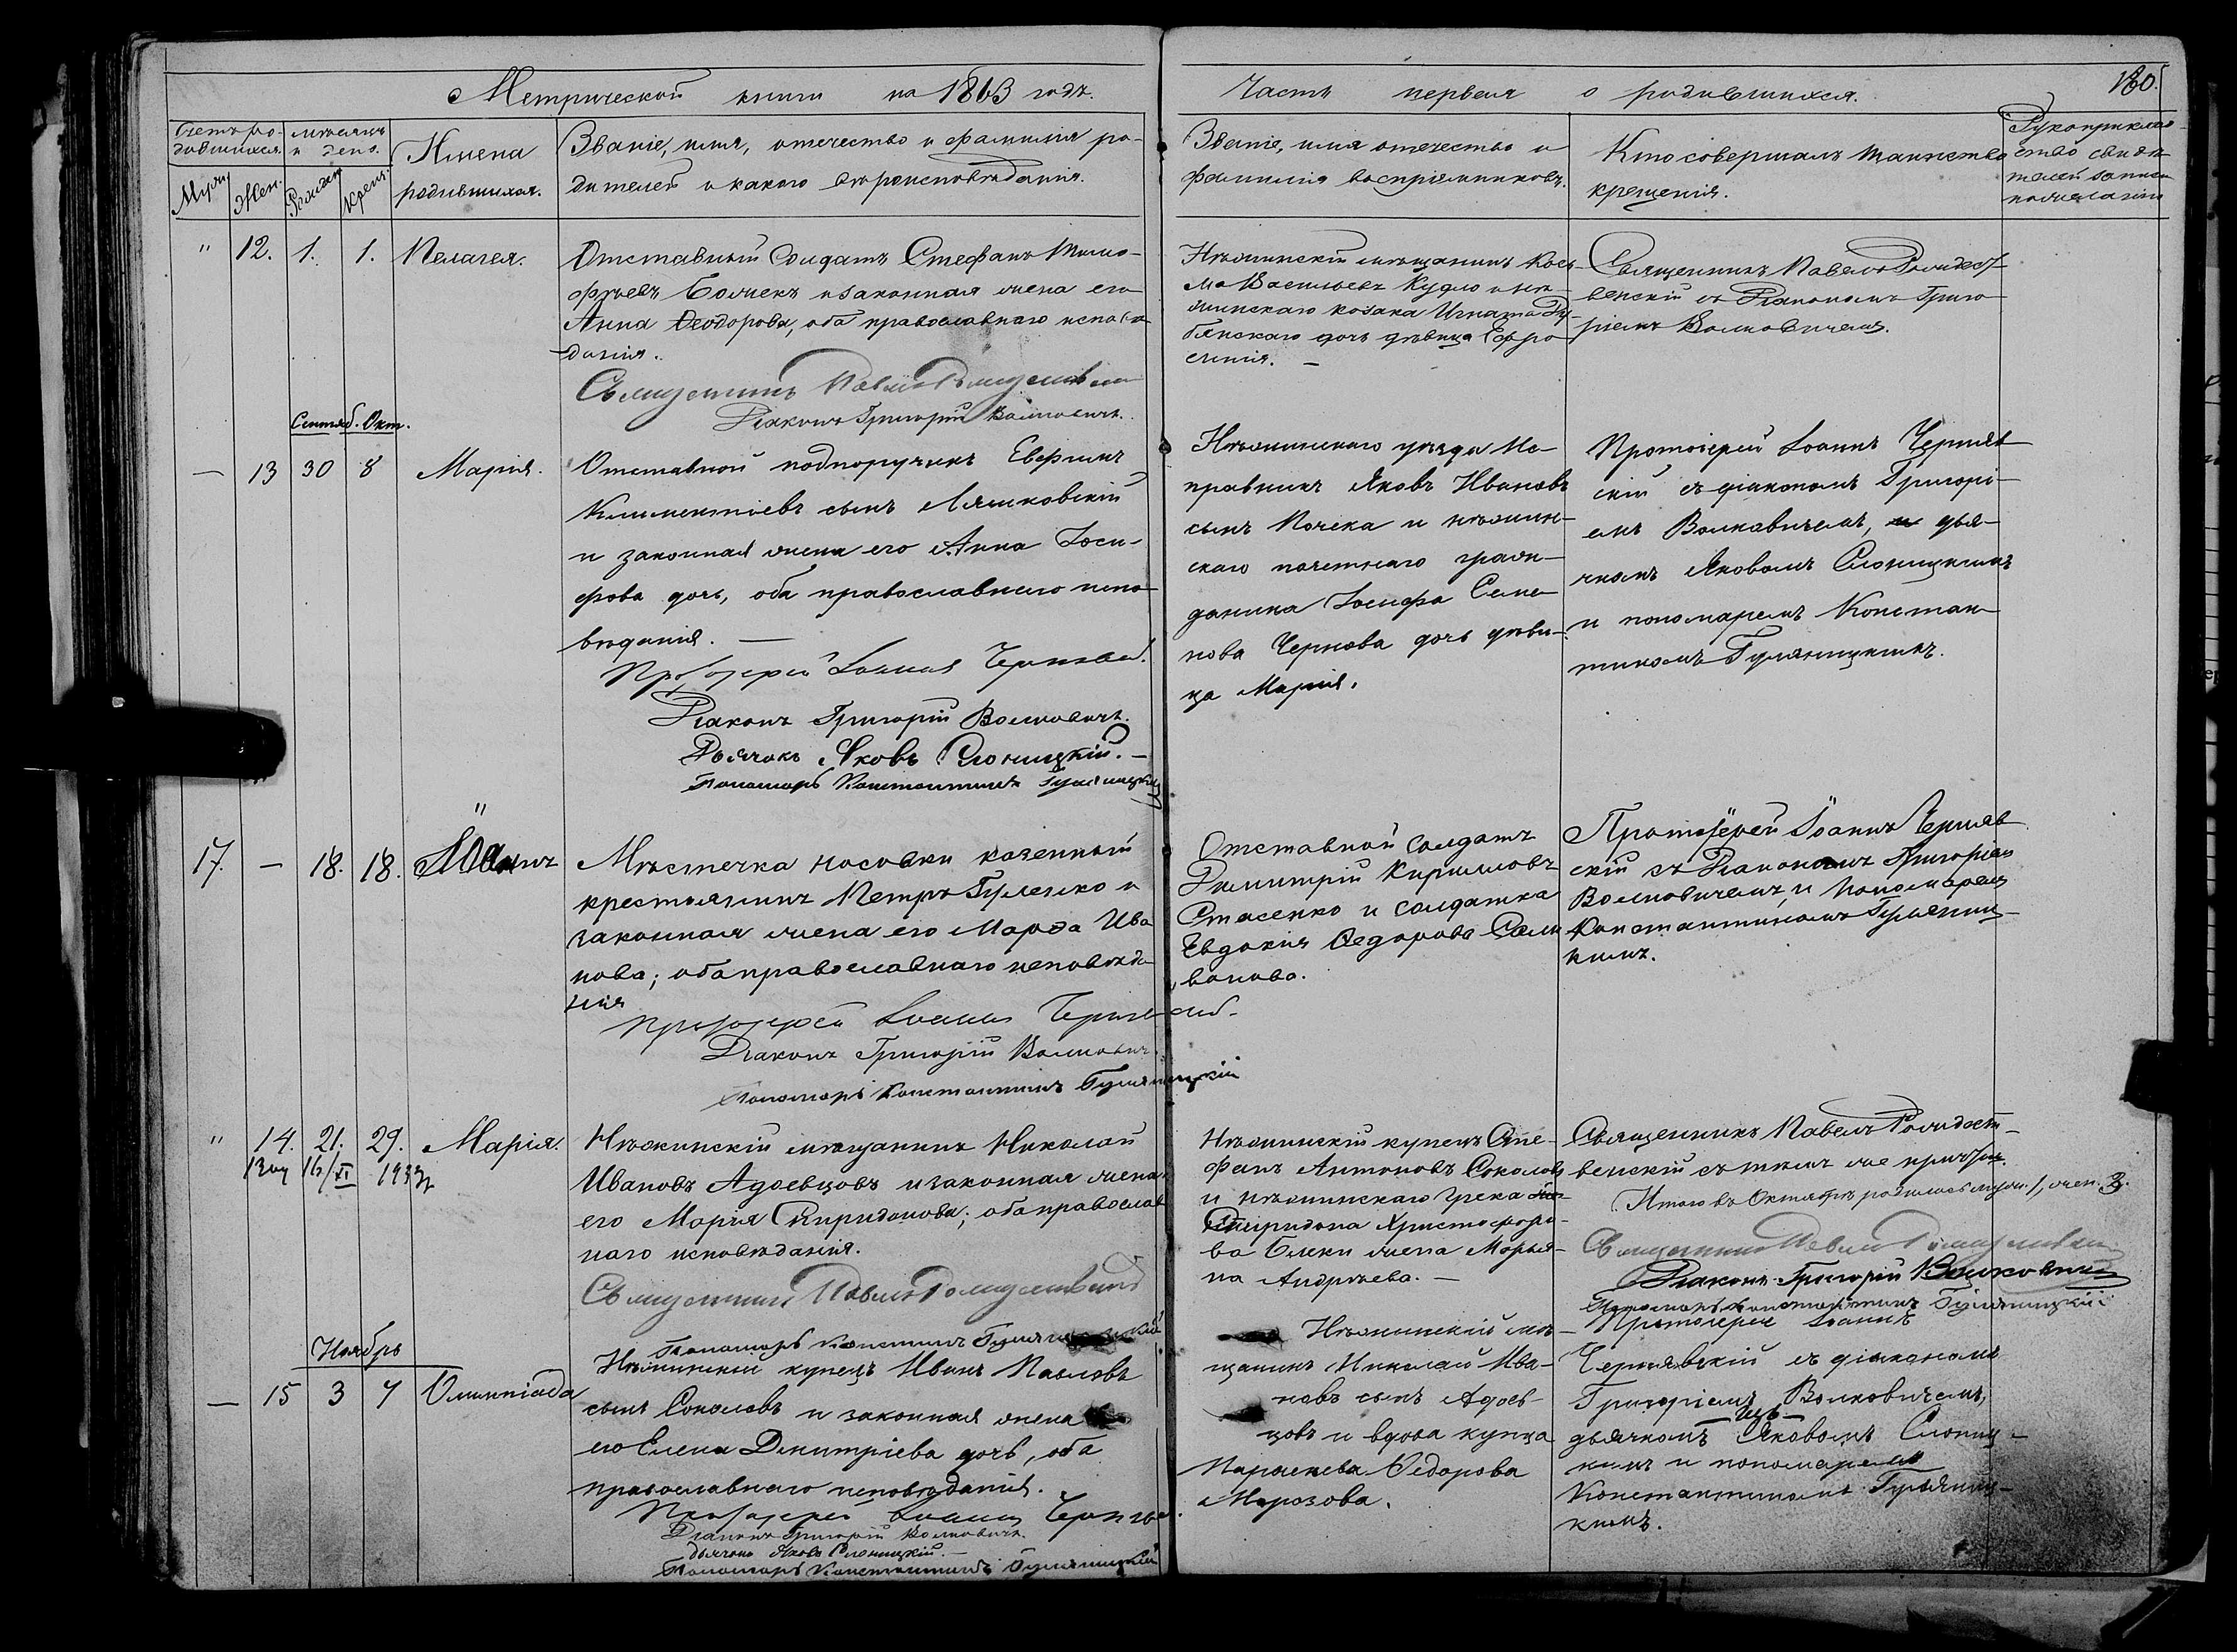 Метрической книги на 1863 годъ.
Часть первая о родившихся.
180.
Счетъ ро-
дившихся.
Муж.
Жен.
мѣсяцъ
и день.
Рожден.
Крещ.
Имена
родившихся.
Званіе, имя, отечество и фамилія ро-
дителей и какого вѣроисповѣданія.
Званіе, имя отечество и
фамилія воспріемниковъ.
Кто совершалъ таинство
крещенія.
Рукоприклад-
ство свидѣ-
телей записи
по желанію
" 12. 1. 1. Пелагея.
Отставный Солдатъ Стефанъ Тимо-
фѣевъ и законная жена его
Анна Ѳеодорова, оба православнаго исповѣ-
данія.
Священникъ Павелъ Рождественскій
Діаконъ Григорій Волковичъ.
Нѣжинскій мѣщанинъ Кось-
ма Васильевъ Кудло и нѣ-
жинскаго козака Игната Ду-
бянскаго дочь дѣвица Ефро
синія. —
Священникъ Павелъ Рождест-
венскій съ Діакономъ Григо
ріемъ Волковичемъ.
Сентяб. Окт.
— 13 30 8 Марія.
Отставной подпоручикъ Евфимъ
Климентіевъ сынъ Ляшковскій
и законная жена его Анна Іоси-
фова дочь, оба православнаго испо-
вѣданія. —
Протоіерей Іоаннъ Чернявскій
Діаконъ Григорій Волковичъ.
Дьячокъ Яковъ Слоницкій. —
Пономарь Константинъ Гуляницкій
Нѣжинскаго уѣзда Ис-
правникъ Яковъ Ивановъ
сынъ Почека и нѣжин-
скаго почетнаго граж-
данина Іосифа Семе
нова Чернова дочь дѣви-
ца Марія.
Протоіерей Іоаннъ Чернявъ
скій съ діакономъ Григорі-
емъ Волковичемъ, дья-
чкомъ Яковомъ Слоницкимъ
и пономаремъ Констан-
тиномъ Гуляницкимъ.
17. — 18. 18. Іоаннъ
Мѣстечка Носовки казенный
крестьянинъ Петръ Гуленко и
законная жена его Марѳа Ива
нова; оба православнаго исповѣда
нія
Протоіерей Іоаннъ Чернявскій
Діаконъ Григорій Волковичъ
Пономарь Константинъ Гуляницкій
Отставной Солдатъ
Димитрій Кирилловъ
Стасенко и солдатка
Евдокія Ѳедорова Сели
ванова.
Протоіерей Іоаннъ Черняв
скій съ Діакономъ Григоріемъ
Волковичемъ и Пономаремъ
Константиномъ Гуляниц-
кимъ.
" 14. 21. 29. Марія.
16/XI 1933
Нѣжинскій мѣщанинъ Николай
Ивановъ Адоевцовъ и законная жена
его Марья Спиридонова; оба православ
наго исповѣданія.
Священникъ Павелъ Рождественскій
Пономарь Константинъ Гуляницкій
Нѣжинскій купецъ Сте-
фанъ Антоновъ Соколовъ
и нѣжинскаго грека
Спиридона Христофоро-
ва жена Марья-
на Андреева. —
Священникъ Павелъ Рождест-
венскій съ тѣмъ же причтомъ.
Итого въ Октябрѣ родилось муж. 1, жен. 3.
Священникъ Павелъ Рождественскій
Діаконъ Григорій Волковичъ
Пономарь Константинъ Гуляницкій
Ноябрь
— 15 3 7 Олимпіада
Нѣжинскій купецъ Иванъ Павловъ
сынъ Соколовъ и законная жена
его Елена Дмитріева дочь, оба
православнаго исповѣданія.
Протоіерей Іоаннъ Чернявскій
Діаконъ Григорій Волковичъ.
Дьячокъ Яковъ Слоницкій. —
Пономарь Константинъ Гуляницкій
Нѣжинскій мѣ-
щанинъ Николай Ива-
новъ сынъ Адоев-
цовъ и вдова купца
Параскева Ѳедорова
Морозова.
Протоіерей Іоаннъ
Чернявскій съ діакономъ
Григоріемъ Волковичемъ,
дьячкомъ Яковомъ Слониц-
кимъ и пономаремъ
Константиномъ Гуляниц-
кимъ.